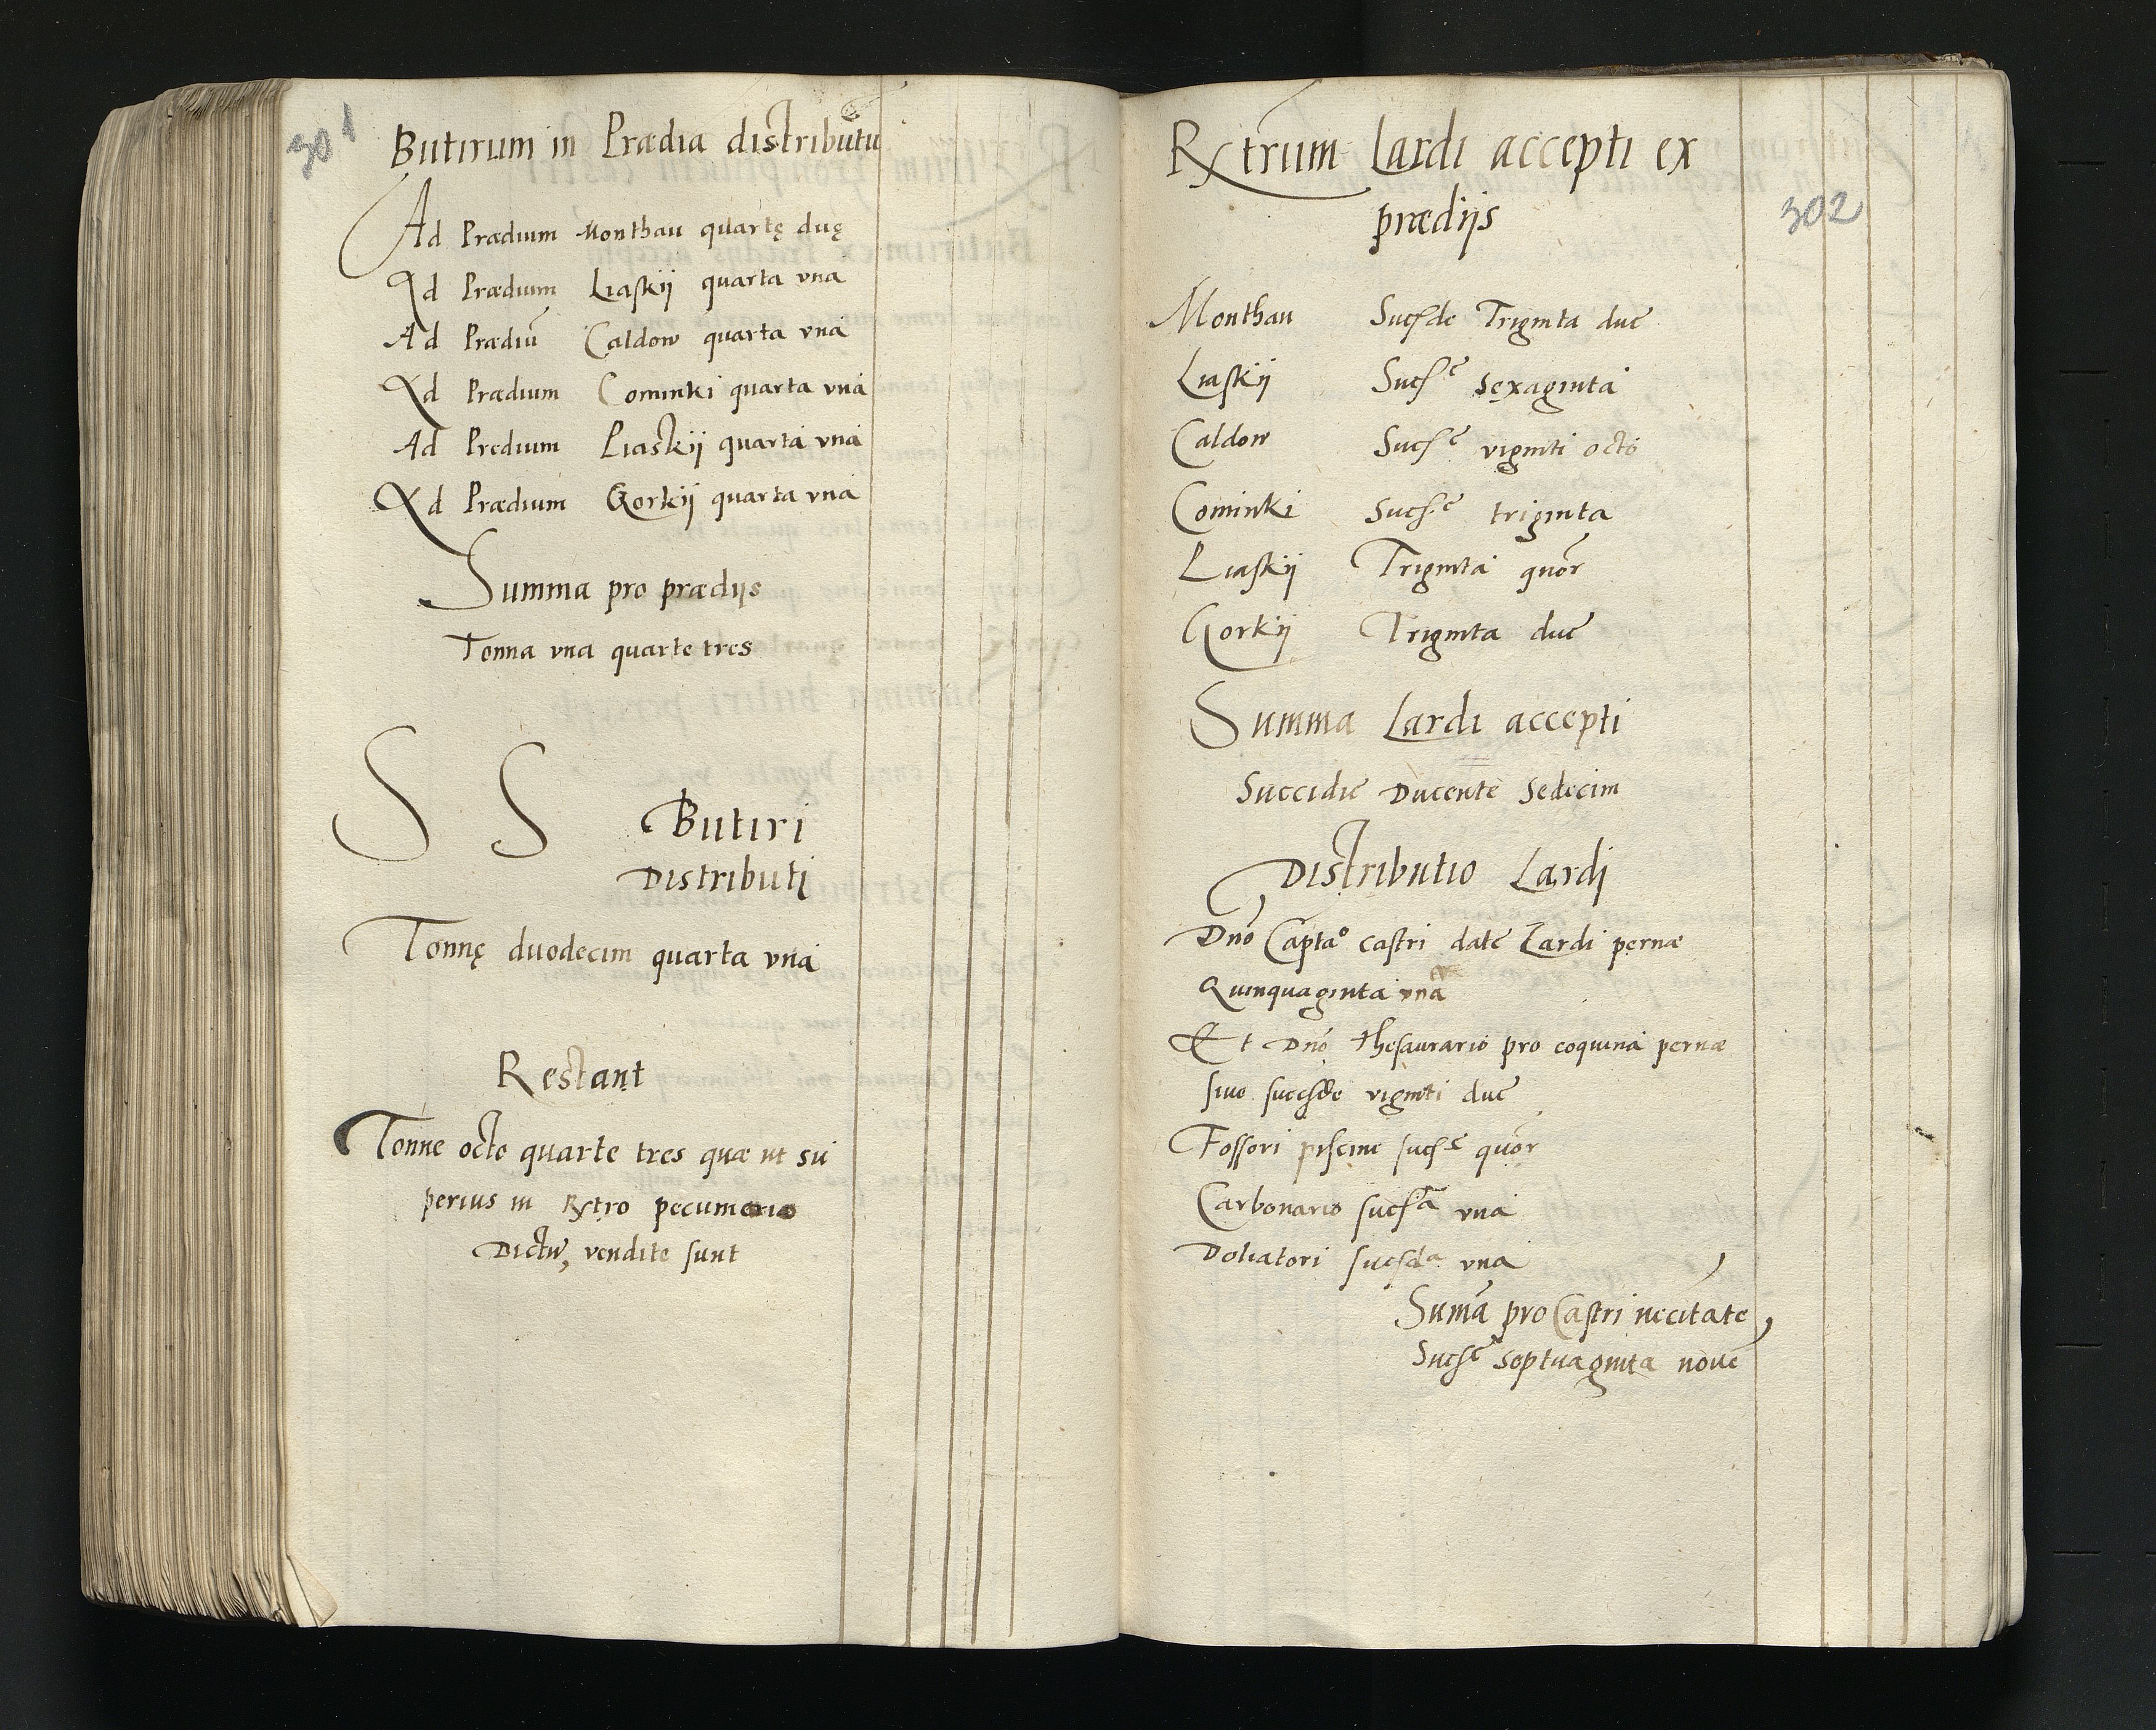 301
Butirum in Prædia distributū
Ad Prædium Monthau quartę duę
Ad Prædium Liaskij quarta vna
Ad Prædiū Caldow quarta vna
Ad Prædium Cominki quarta vna
Ad Predium Liaskij quarta vna
Ad Prædium Gorkij quarta vna
Summa pro prædijs
Tonna vna quarte tres
S S Butiri
Distributi
Tonnę duodecim quarta vna
Restant
Tonne octo quarte tres quæ ut su
perius in Rxtro pecumario
Dictū, vendite sunt
Rxtrum Lardi accepti ex
prædijs
302
Monthau Sucsde Triginta due
Liaskij Sucse sexaginta
Caldow Sucse viginti octo
Cominki Sucse triginta
Liaskij Triginta quōr
Gorkij Triginta due
Summa Lardi accepti
Succidie Ducente Sedecim
Distributio Lardi
Dnō Captao castri date Lardi pernæ
Quinquaginta vna
Et Dnō thesaurario pro coquina pernæ
siue sucsde viginti due
Fossori piscine sucse quōr
Carbonario sucsa vna
Doliatori sucsda vna
Sumā pro Castri necitate,
Sucse septuaginta noue